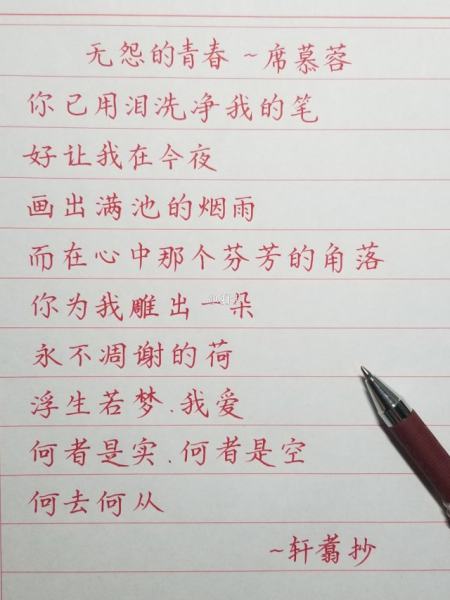 无怨的青春 ~席慕蓉
你已用泪洗净我的笔
好让我在今夜
画出满池的烟雨
而在心中那个芬芳的角落
你为我雕出一朵
永不凋谢的荷
浮生若梦.我爱
何者是实.何者是空
何去何从
~轩翥抄